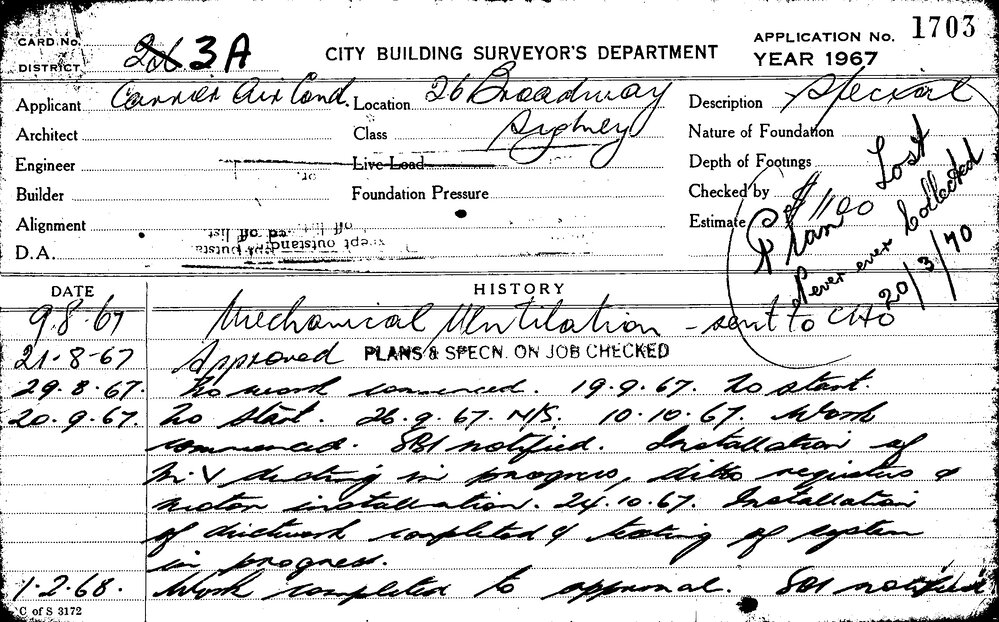 CARD No.
DISTRICT 3A
CITY BUILDING SURVEYOR'S DEPARTMENT
APPLICATION No. 1703
YEAR 1967
Applicant Carrier Air Cond. Location 26 Broadway Description Special
Architect Class Sydney Nature of Foundation
Engineer Live Load Depth of Footings
Builder Foundation Pressure Checked by
Alignment Estimate £1100
D.A.
Plan Lost
Never ever Collected
20/3/70
DATE HISTORY
9.8.67 Mechanical Ventilation - sent to CHO
21.8.67 Approved PLANS & SPECN. ON JOB CHECKED
29.8.67. No work commenced. 19.9.67. No start.
20.9.67. No start. 26.9.67. N/S. 10.10.67. Work
commenced. SBI notified. Installation of
M.V ducting in progress, ditto registers &
motor installation. 24.10.67. Installation
of ductwork completed & testing of system
in progress.
1.2.68. Work completed to approval. SBI notified
C of S 3172